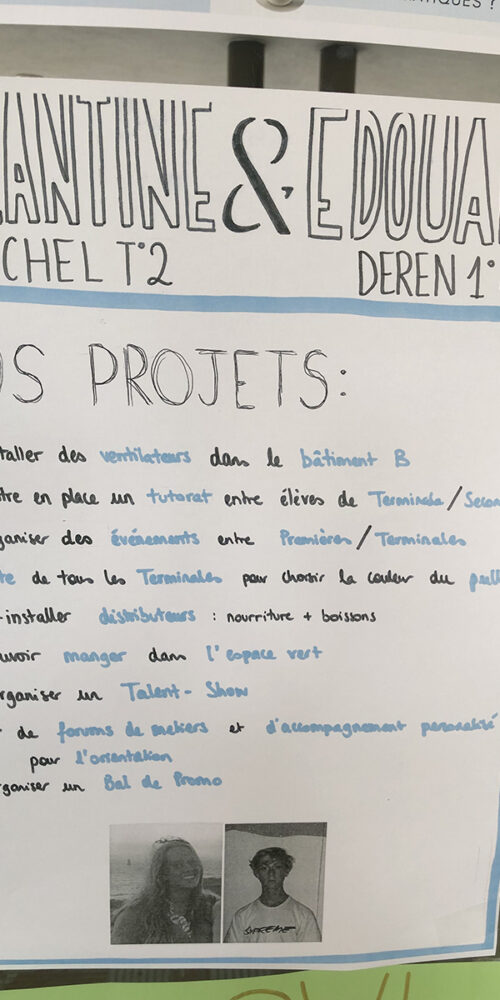 TIQUES ?
ANTINE & EDOUA
CHEL T°2 DEREN 1°
OS PROJETS:
taller des ventilateurs dans le bâtiment B
tre en place un tutorat entre élèves de Terminale/Secon
ganiser des événements entre Premières/Terminales
te de tous les Terminales pour choisir la couleur du pull
-installer distributeurs : nourriture + boissons
uvoir manger dans l'espace vert
rganiser un Talent-Show
de forums de métiers et d'accompagnement personalisé
pour l'orientation
rganiser un Bal de Promo
SUPREME